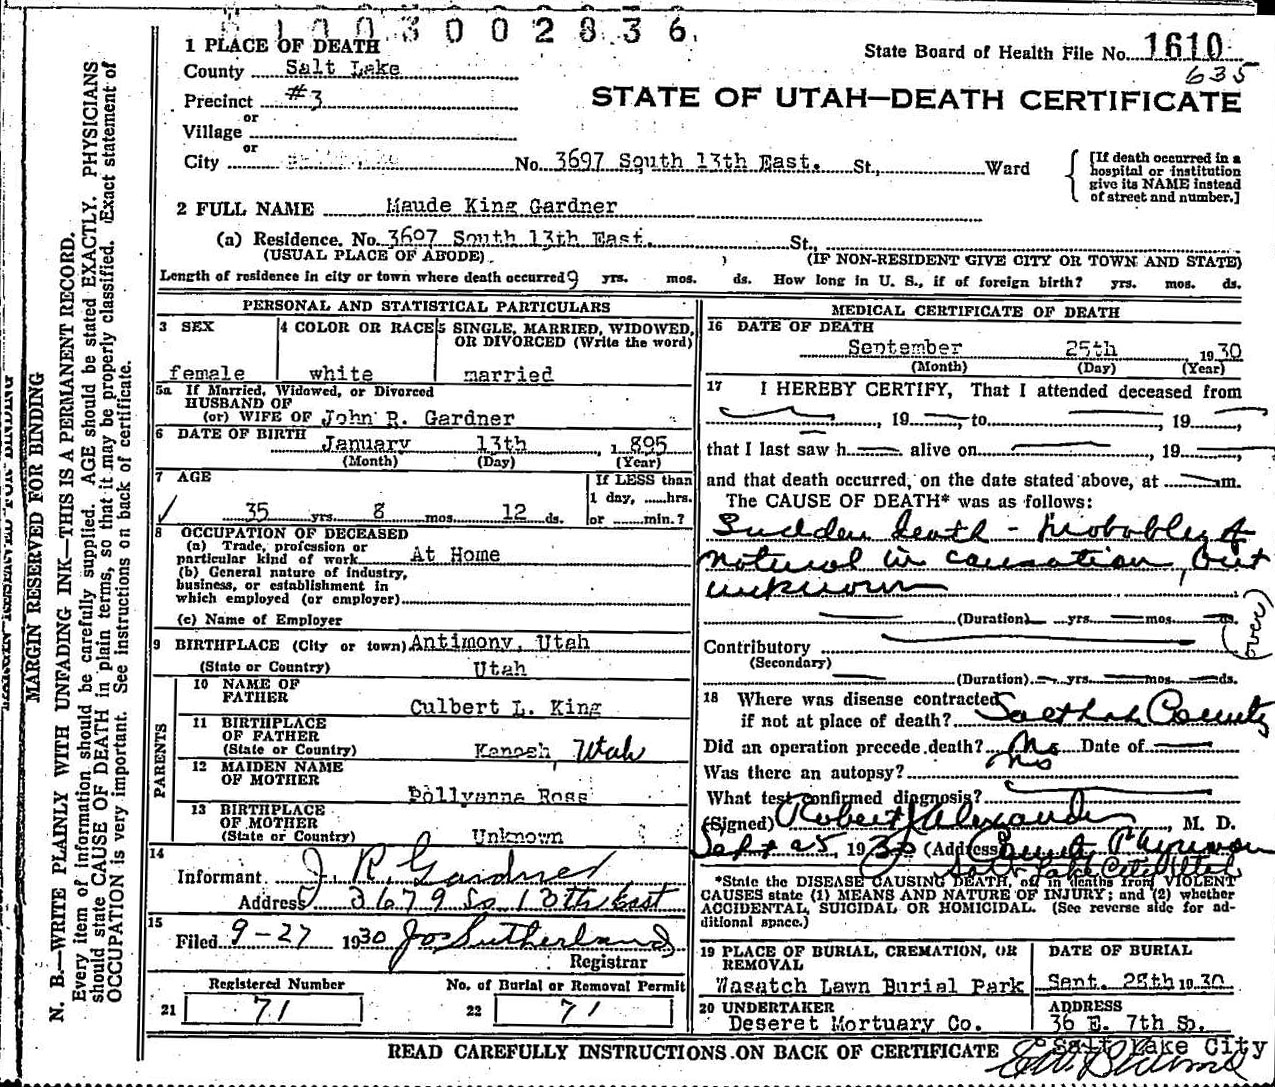 1003002836
1 PLACE OF DEATH
State Board of Health File No. 1610
County Salt Lake
635
Precinct #3
STATE OF UTAH—DEATH CERTIFICATE
or
Village
or
City No. 3697 South 13th East. St., Ward
[If death occurred in a hospital or institution give its NAME instead of street and number.]
2 FULL NAME Maude King Gardner
(a) Residence. No. 3697 South 13th East. St.,
(USUAL PLACE OF ABODE) (IF NON-RESIDENT GIVE CITY OR TOWN AND STATE)
Length of residence in city or town where death occurred 9 yrs. mos. ds. How long in U. S., if of foreign birth? yrs. mos. ds.
PERSONAL AND STATISTICAL PARTICULARS
3 SEX
female
4 COLOR OR RACE
white
5 SINGLE, MARRIED, WIDOWED,
OR DIVORCED (Write the word)
married
5a If Married, Widowed, or Divorced
HUSBAND OF
(or) WIFE OF John R. Gardner
6 DATE OF BIRTH
January 13th, 1895
(Month) (Day) (Year)
7 AGE
If LESS than
1 day, hrs.
or min.?
✓ 35 yrs. 8 mos. 12 ds.
8 OCCUPATION OF DECEASED
(a) Trade, profession or
particular kind of work At Home
(b) General nature of industry,
business, or establishment in
which employed (or employer)
(c) Name of Employer
9 BIRTHPLACE (City or town) Antimony, Utah
(State or Country) Utah
PARENTS
10 NAME OF
FATHER
Culbert L. King
11 BIRTHPLACE
OF FATHER
(State or Country) Kanosh, Utah
12 MAIDEN NAME
OF MOTHER
Pollyanna Ross
13 BIRTHPLACE
OF MOTHER
(State or Country) Unknown
14
Informant J. R. Gardner
Address 3679 So 13th East
15
Filed 9-27 1930 Jos Sutherland
Registrar
Registered Number
21 71
No. of Burial or Removal Permit
22 71
MEDICAL CERTIFICATE OF DEATH
16 DATE OF DEATH
September 25th 1930
(Month) (Day) (Year)
17 I HEREBY CERTIFY, That I attended deceased from
, 19 , to , 19 ,
that I last saw h alive on , 19 ,
and that death occurred, on the date stated above, at m.
The CAUSE OF DEATH* was as follows:
Sudden death - Probably
natural in causation, but
unknown
(Duration) yrs. mos. ds.
Contributory
(Secondary)
(Duration) yrs. mos. ds.
18 Where was disease contracted
if not at place of death? Salt Lake County
Did an operation precede death? No Date of
Was there an autopsy? No
What test confirmed diagnosis?
(Signed) Robert Alexander, M. D.
Sept 25, 1930 (Address) County Physician
Salt Lake City Utah
*State the DISEASE CAUSING DEATH, or in deaths from VIOLENT
CAUSES state (1) MEANS AND NATURE OF INJURY; and (2) whether
ACCIDENTAL, SUICIDAL OR HOMICIDAL. (See reverse side for ad-
ditional space.)
19 PLACE OF BURIAL, CREMATION, OR
REMOVAL
Wasatch Lawn Burial Park
DATE OF BURIAL
Sept. 28th 1930
20 UNDERTAKER
Deseret Mortuary Co.
ADDRESS
36 E. 7th So.
Salt Lake City
READ CAREFULLY INSTRUCTIONS ON BACK OF CERTIFICATE
MARGIN RESERVED FOR BINDING
N. B.—WRITE PLAINLY WITH UNFADING INK—THIS IS A PERMANENT RECORD.
Every item of information should be carefully supplied. AGE should be stated EXACTLY. PHYSICIANS
should state CAUSE OF DEATH in plain terms, so that it may be properly classified. Exact statement of
OCCUPATION is very important. See instructions on back of certificate.